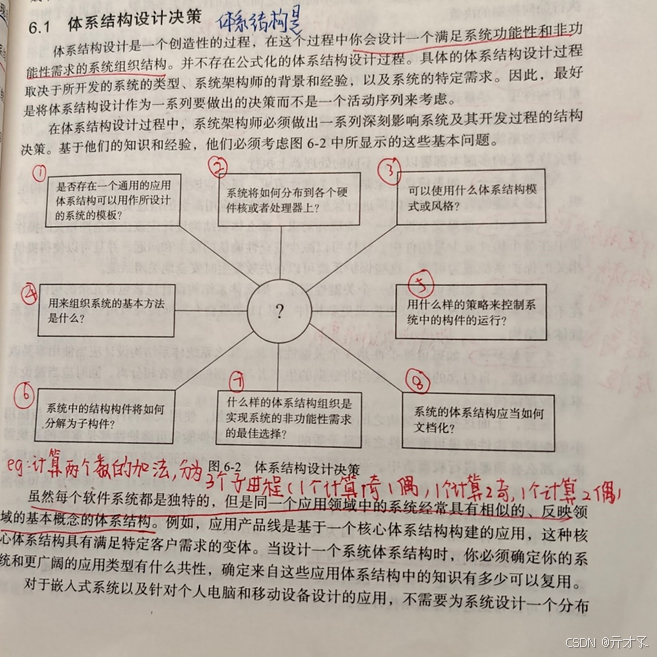 6.1 体系结构设计决策 体系结构是
体系结构设计是一个创造性的过程，在这个过程中你会设计一个满足系统功能性和非功
能性需求的系统组织结构。并不存在公式化的体系结构设计过程。具体的体系结构设计过程
取决于所开发的系统的类型、系统架构师的背景和经验，以及系统的特定需求。因此，最好
是将体系结构设计作为一系列要做出的决策而不是一个活动序列来考虑。
在体系结构设计过程中，系统架构师必须做出一系列深刻影响系统及其开发过程的结构
决策。基于他们的知识和经验，他们必须考虑图 6-2 中所显示的这些基本问题。
①
是否存在一个通用的应用
体系结构可以用作所设计
的系统的模板？
②
系统将如何分布到各个硬
件核或者处理器上？
③
可以使用什么体系结构模
式或风格？
④
用来组织系统的基本方法
是什么？
?
⑤
用什么样的策略来控制系
统中的构件的运行？
⑥
系统中的结构构件将如何
分解为子构件？
⑦
什么样的体系结构组织是
实现系统的非功能性需求
的最佳选择？
⑧
系统的体系结构应当如何
文档化？
图 6-2 体系结构设计决策
eg:计算两个数的加法,分为3个子 程(1个计算1奇1偶,1个计算2奇,1个计算2偶)
虽然每个软件系统都是独特的，但是同一个应用领域中的系统经常具有相似的、反映领
域的基本概念的体系结构。例如，应用产品线是基于一个核心体系结构构建的应用，这种核
心体系结构具有满足特定客户需求的变体。当设计一个系统体系结构时，你必须确定你的系
统和更广阔的应用类型有什么共性，确定来自这些应用体系结构中的知识有多少可以复用。
对于嵌入式系统以及针对个人电脑和移动设备设计的应用，不需要为系统设计一个分布
CSDN @亓才孑